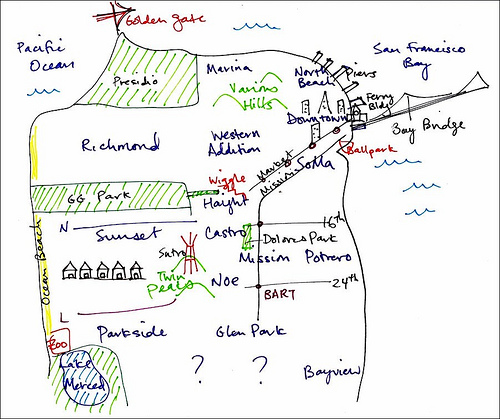 Golden Gate
Pacific
Ocean
San Francisco
Bay
Presidio
Marina
Various
Hills
North
Beach
Piers
Ferry
Bldg
Downtown
Bay Bridge
Richmond
Western
Addition
Ballpark
Market
Mission
SoMa
Wiggle
GG Park
Haight
Ocean Beach
N
Sunset
Castro
16th
Dolores Park
Sutro
Mission
Potrero
Twin
Peaks
Noe
24th
BART
L
Zoo
Parkside
Glen Park
Lake
Merced
?
?
Bayview